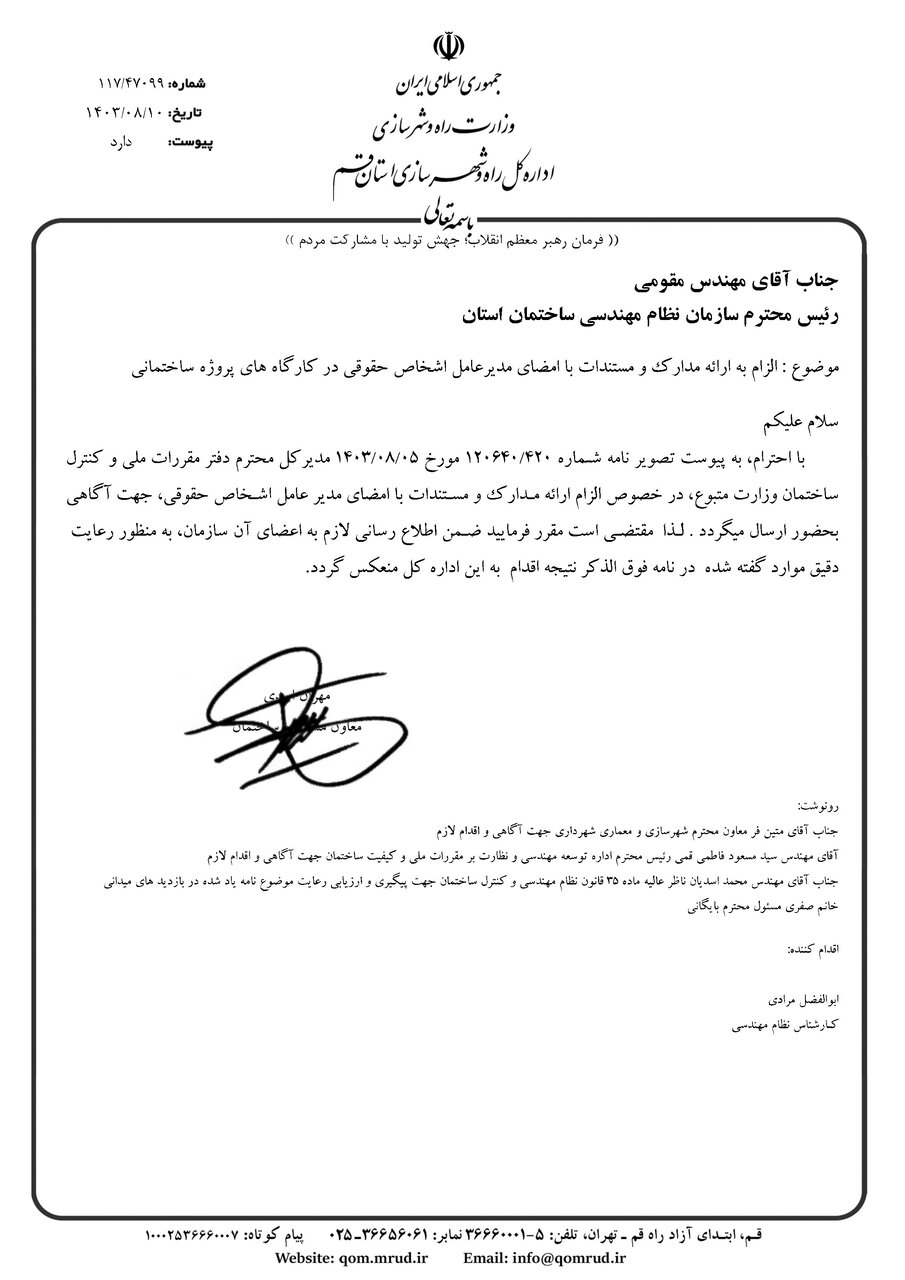 جمهوری اسلامی ایران
وزارت راه و شهرسازی
اداره کل راه و شهرسازی استان قم
باسمه تعالی
شماره: ۱۱۷/۴۷۰۹۹
تاریخ: ۱۴۰۳/۰۸/۱۰
پیوست: دارد
(( فرمان رهبر معظم انقلاب؛ جهش تولید با مشارکت مردم ))
جناب آقای مهندس مقومی
رئیس محترم سازمان نظام مهندسی ساختمان استان
موضوع : الزام به ارائه مدارک و مستندات با امضای مدیرعامل اشخاص حقوقی در کارگاه های پروژه ساختمانی
سلام علیکم
با احترام، به پیوست تصویر نامه شماره ۱۲۰۶۴۰/۴۲۰ مورخ ۱۴۰۳/۰۸/۰۵ مدیرکل محترم دفتر مقررات ملی و کنترل
ساختمان وزارت متبوع، در خصوص الزام ارائه مدارک و مستندات با امضای مدیر عامل اشخاص حقوقی، جهت آگاهی
بحضور ارسال میگردد . لذا مقتضی است مقرر فرمایید ضمن اطلاع رسانی لازم به اعضای آن سازمان، به منظور رعایت
دقیق موارد گفته شده در نامه فوق الذکر نتیجه اقدام به این اداره کل منعکس گردد.
معاون ساختمان
رونوشت:
جناب آقای متین فر معاون محترم شهرسازی و معماری شهرداری جهت آگاهی و اقدام لازم
آقای مهندس سید مسعود فاطمی قمی رئیس محترم اداره توسعه مهندسی و نظارت بر مقررات ملی و کیفیت ساختمان جهت آگاهی و اقدام لازم
جناب آقای مهندس محمد اسدیان ناظر عالیه ماده ۳۵ قانون نظام مهندسی و کنترل ساختمان جهت پیگیری و ارزیابی رعایت موضوع نامه یاد شده در بازدید های میدانی
خانم صفری مسئول محترم بایگانی
اقدام کننده:
ابوالفضل مرادی
کارشناس نظام مهندسی
قم، ابتدای آزاد راه قم ـ تهران، تلفن: ۵-۳۶۶۶۰۰۰۱ نمابر: ۳۶۶۵۶۰۶۱ـ۰۲۵ پیام کوتاه: ۱۰۰۰۲۵۳۶۶۶۰۰۰۷
Website: qom.mrud.ir Email: info@qomrud.ir